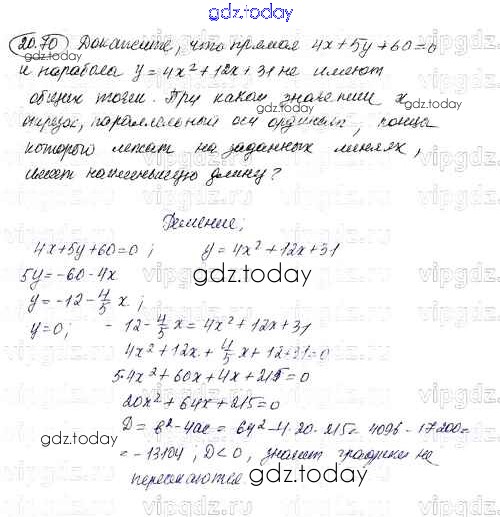 gdz.today
20.70 Докажите, что прямая 4x+5y+60=0
и парабола y=4x²+12x+31 не имеют
общих точек. При каком значении x
отрезок, параллельный оси ординат, концы
которого лежат на заданных линиях,
имеет наименьшую длину?
Решение:
4x+5y+60=0; y=4x²+12x+31
5y=-60-4x
gdz.today
y=-12-4/5 x;
y=0; -12-4/5 x=4x²+12x+31
4x²+12x+4/5 x+12+31=0
5·4x²+60x+4x+215=0
20x²+64x+215=0
gdz.today
D=b²-4ac=64²-4·20·215=4096-17200=
=-13104, D<0, значит графики не
пересекаются.
gdz.today